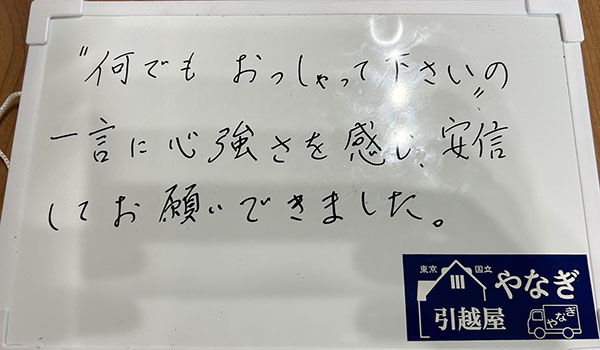 "何でも おっしゃって下さい"の
一言に心強さを感じ、安信
してお願いできました。
東京 国立
やなぎ
引越屋
やなぎ